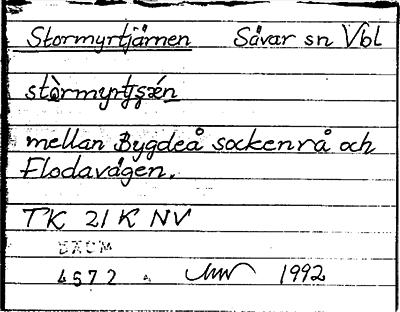 Stormyrtjärnen Sävar sn Vbl
stòrmyrtjsǽn
mellan Bygdeå sockenrå och
Flodavägen.
TK 21 K NV
EXCM
4572 1992